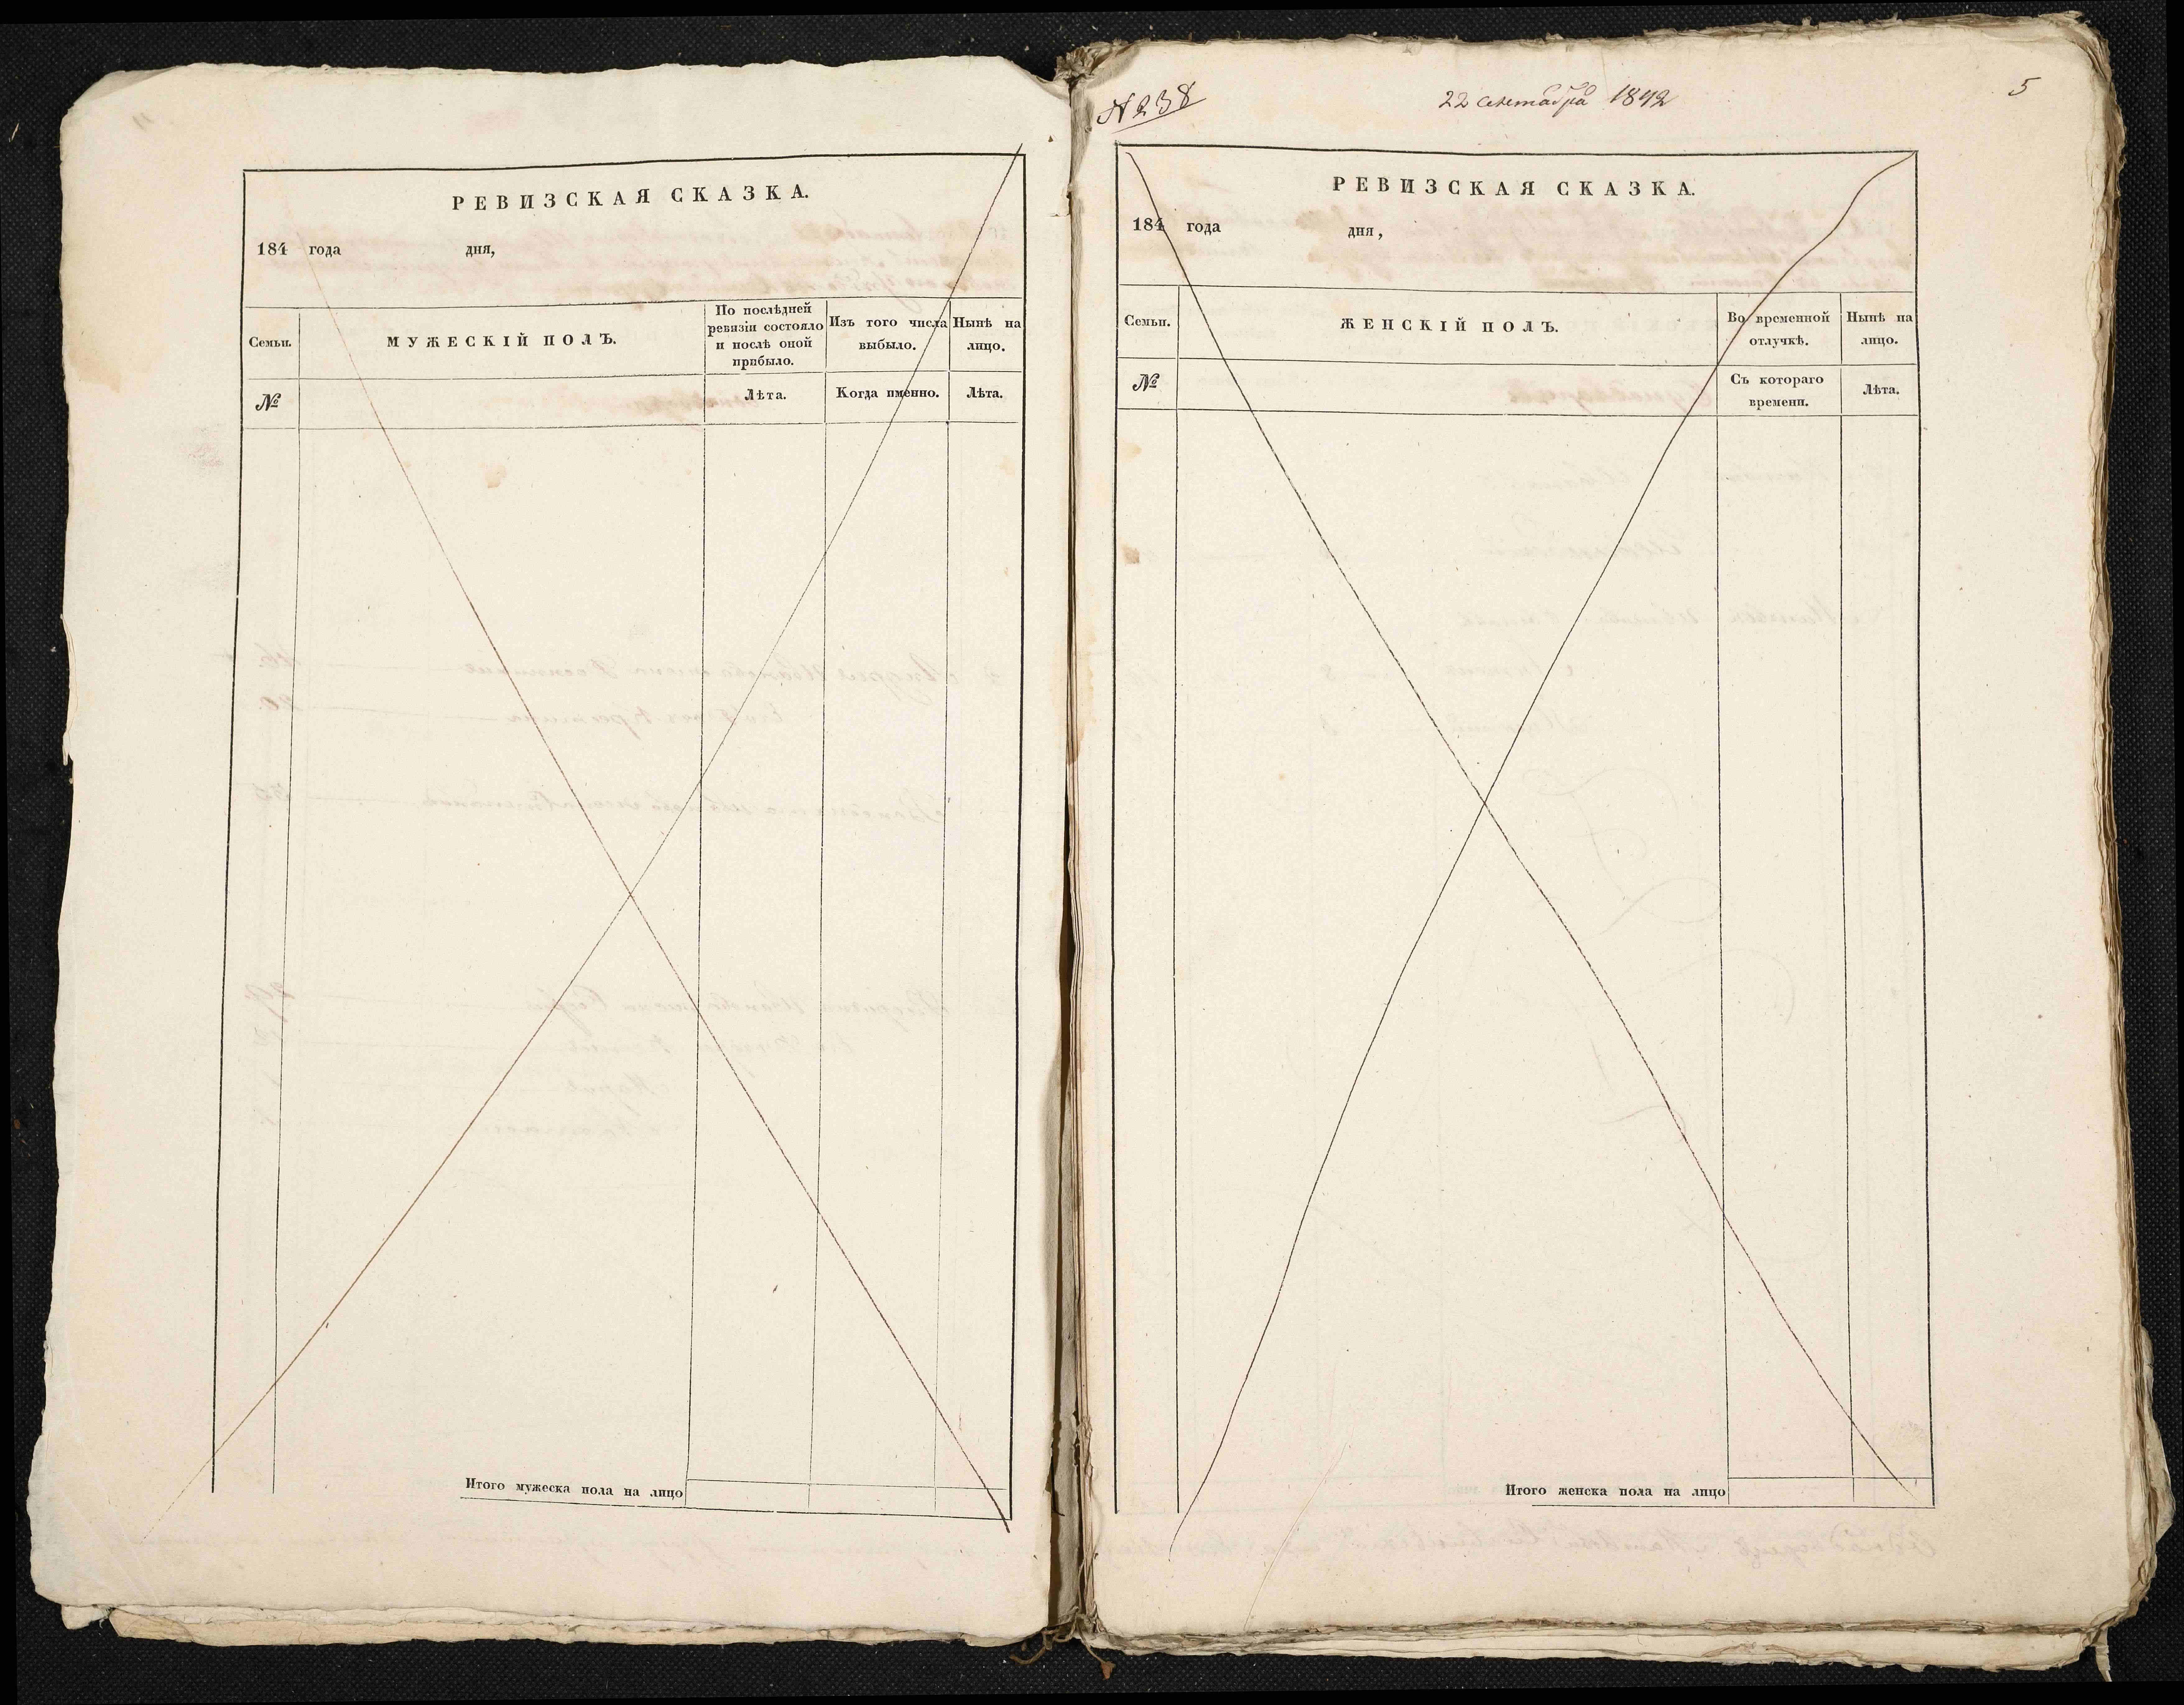 РЕВИЗСКАЯ СКАЗКА.
184 года дня,
Семьи.
МУЖЕСКІЙ ПОЛЪ.
По послѣдней
ревизіи состояло
и послѣ оной
прибыло.
Изъ того числа
выбыло.
Нынѣ на
лицо.
№
Лѣта.
Когда именно.
Лѣта.
Итого мужеска пола на лицо
№ 238
22 сентября 1842
5
РЕВИЗСКАЯ СКАЗКА.
184 года дня,
Семьи.
ЖЕНСКІЙ ПОЛЪ.
Во временной
отлучкѣ.
Нынѣ на
лицо.
№
Съ котораго
времени.
Лѣта.
Итого женска пола на лицо